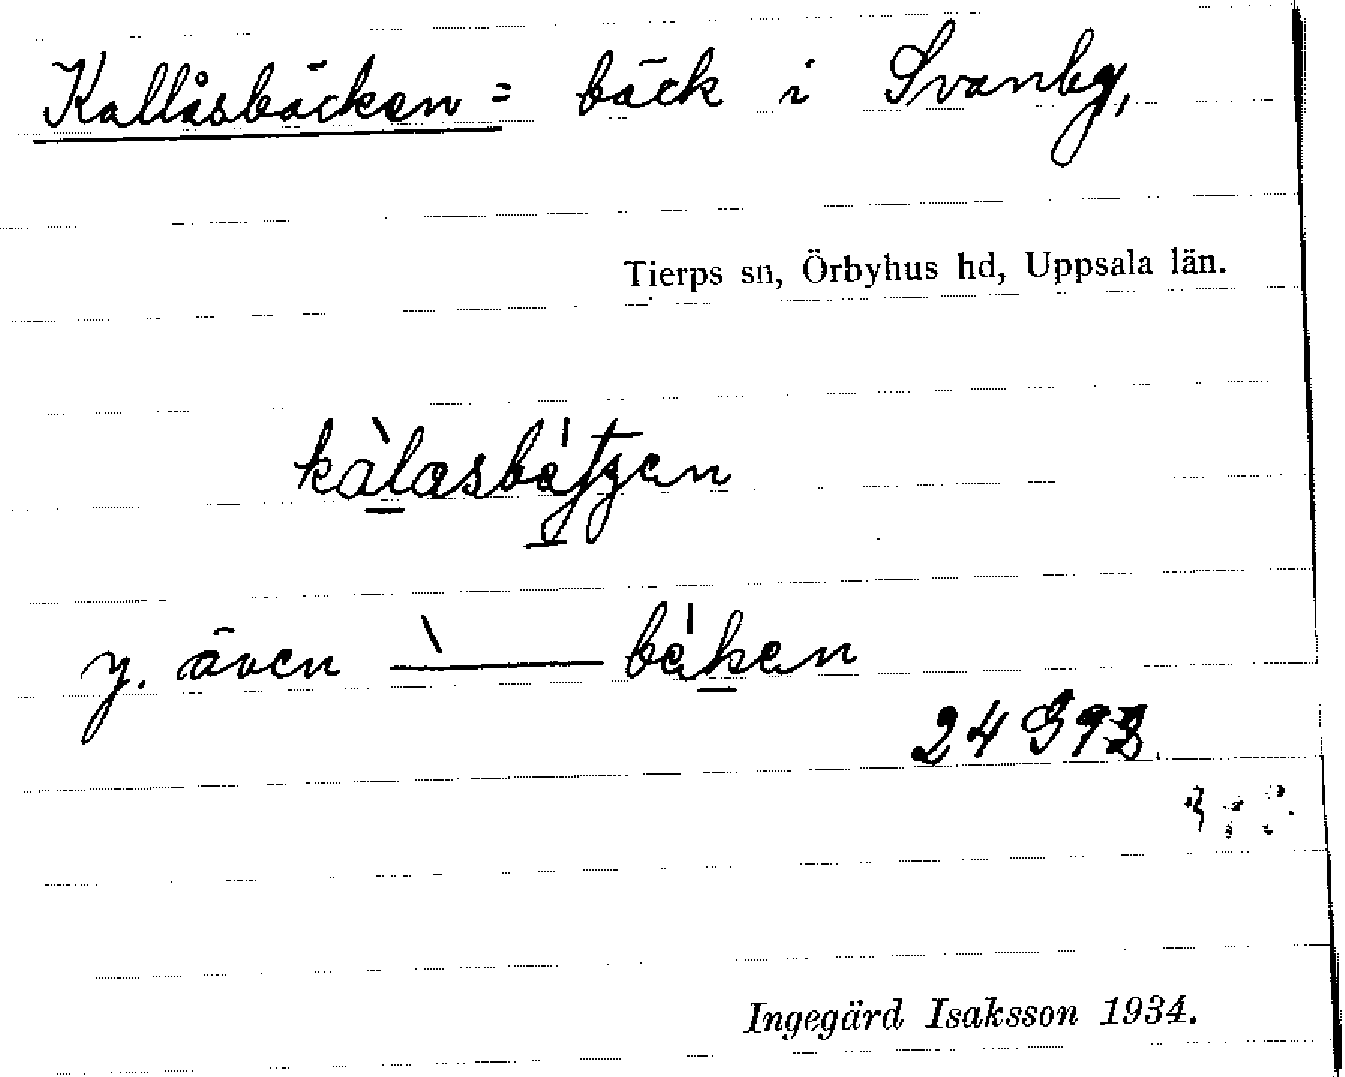 Kallåsbäcken = bäck i Svanby,
Tierps sn, Örbyhus hd, Uppsala län.
kàlasbätʒen
y. även ━̀ bäken
24 G 93
Ingegärd Isaksson 1934.